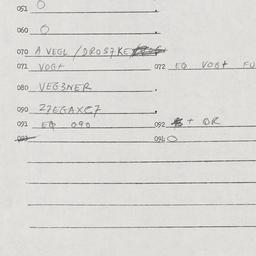 051 0
060 0
070 A VEGL / DROS7KE
071 VOGT 072 EQ VOGT FU
080 VEG3NER
090 27EGAXE7
091 EQ 090 092 + OR
093 094 0